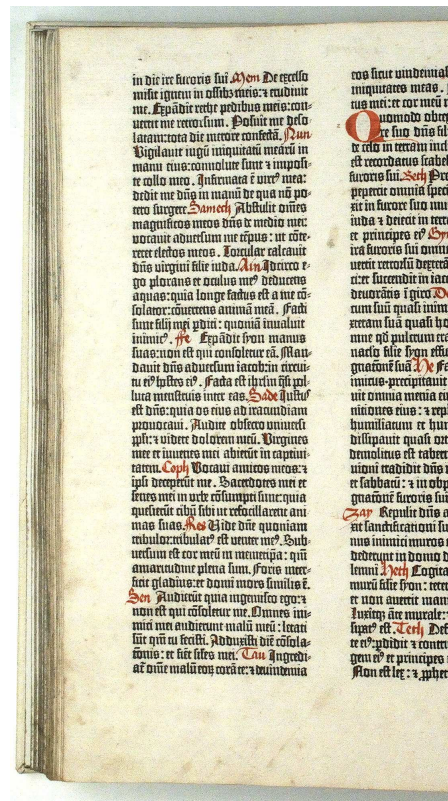 in die ire furoris sui Mem De excelso
misit ignem in ossibꝫ meis: ⁊ erudiuit
me. Expādit rethe pedibus meis: con-
uertit me retrorsum. Posuit me deso-
latam: tota die merore confectā. Nun
Vigilauit iugū iniquitatū mearū in
manu eius: conuolute sunt ⁊ imposi-
te collo meo. Infirmata ē virtꝰ mea:
dedit me dn̄s in manū de qua nō po-
tero surgere Samech Abstulit om̄es
magnificos meos dn̄s de medio mei:
vocauit aduersum me tēpus: ut cōte-
reret electos meos. Torcular calcauit
dn̄s virgini filie iuda. Ain Idcirco e-
go plorans et oculus meꝰ deducens
aquas: quia longe factus est a me cō-
solator: cōuertens animā meā. Facti
sunt filij mei ꝑditi: quoniā inualuit
inimicꝰ. ffe Expādit syon manus
suas: non est qui consoletur eā. Man-
dauit dn̄s aduersum iacob: in circui-
tu eiꝰ hostes eiꝰ. Facta est ihrl̄m q̄si pol-
luta menstruis inter eas. Sade Iustꝰ
est dn̄s: quia os eius ad iracundiam
prouocaui. Audite obsecro vniuersi
ppl̄i: ⁊ videte dolorem meū. Virgines
mee et iuuenes mei abierūt in captiui-
tatem. Coph Vocaui amicos meos: ⁊
ipsi deceperūt me. Sacerdotes mei et
senes mei in vrbe cōsumpti sunt: quia
quesierūt cibū sibi ut refocillarent ani-
mas suas. Res Vide dn̄e quoniam
tribulor: cōturbatꝰ est venter meꝰ. Sub-
uersum est cor meū in memetipsa: qm̄
amaritudine plena sum. Foris inter-
ficit gladius: et domi mors similis ē.
Sen Audierūt quia ingemisco ego: ⁊
non est qui cōsoletur me. Omnes ini-
mici mei audierunt malū meū: letati
sūt qm̄ tu fecisti. Adduxisti diē cōsola-
tionis: et fiēt siłes mei. Tau Ingredi-
at̄ om̄e malū eoꝝ corā te: ⁊ deuindemia
eos sicut vindemias
iniquitates meas.
tus mei: et cor meū
Quomodo obtex
re suo dn̄s fili
de celo in terram incl
est recordatus scabel
furoris sui. Beth Pre
pepercit omnia speci
xit in furore suo mu
iuda ⁊ deiecit in terr
et principes eiꝰ Gym
ira furoris sui omne
uertit retrorsū dexterā
ci: et succendit in iac
deuorātis ī giro De
cum suū quasi inim
xteram suā quasi ho
mne qd̄ pulcrum era
naclo filie syon effu
gnationē suā He Fa
imicus: precipitauit
uit omnia menia ei
nitiones eius: ⁊ rep
humiliatum et hum
dissipauit quasi ort
demolitus est tabern
uioni tradidit dn̄s i
et sabbatū: ⁊ in obp
gnationē furoris sui
Zay Repulit dn̄s a
xit sanctificationi su
nus inimici muros
dederunt in domo d
lenni Heth Cogita
murū filie syon: teten
et non auertit man
luxitqꝫ āte murale:
sipatꝰ est. Teth Def
te eiꝰ: ꝑdidit ⁊ contri
gem eiꝰ et principes
Non est lex: ⁊ ꝓphet